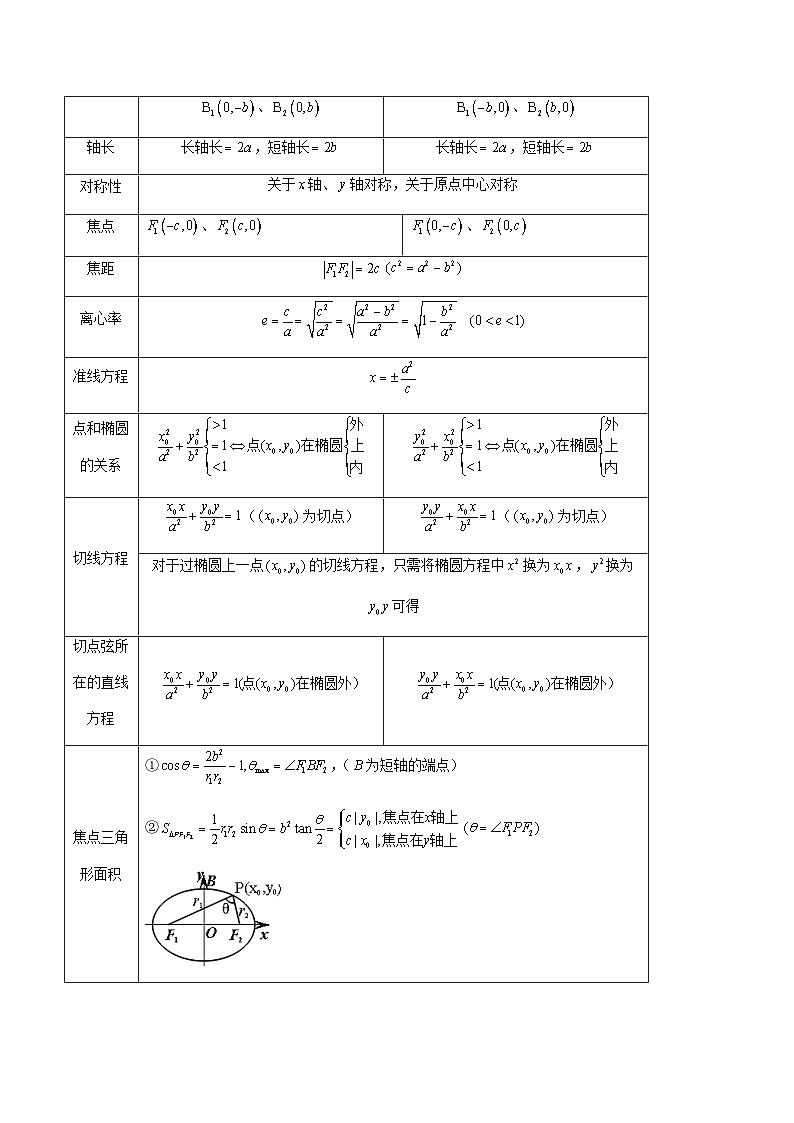 B₁(0,−b)、B₂(0,b)    B₁(−b,0)、B₂(b,0)
轴长    长轴长= 2a，短轴长= 2b    长轴长= 2a，短轴长= 2b
对称性    关于 x 轴、y 轴对称，关于原点中心对称
焦点    F₁(−c,0)、F₂(c,0)    F₁(0,−c)、F₂(0,c)
焦距    |F₁F₂| = 2c (c² = a² − b²)
离心率    e = c/a = √(c²/a²) = √((a² − b²)/a²) = √(1 − b²/a²)  (0 < e < 1)
准线方程    x = ± a²/c
点和椭圆
的关系    x₀²/a² + y₀²/b² { >1 =1 <1 ⇔ 点(x₀, y₀)在椭圆 { 外 上 内    y₀²/a² + x₀²/b² { >1 =1 <1 ⇔ 点(x₀, y₀)在椭圆 { 外 上 内
切线方程    x₀x/a² + y₀y/b² = 1（(x₀, y₀) 为切点）    y₀y/a² + x₀x/b² = 1（(x₀, y₀) 为切点）
对于过椭圆上一点 (x₀, y₀) 的切线方程，只需将椭圆方程中 x² 换为 x₀x，y² 换为
y₀y 可得
切点弦所
在的直线
方程    x₀x/a² + y₀y/b² = 1(点(x₀, y₀)在椭圆外）    y₀y/a² + x₀x/b² = 1(点(x₀, y₀)在椭圆外）
焦点三角
形面积
①cosθ = 2b²/(r₁r₂) − 1, θmax = ∠F₁BF₂，（B 为短轴的端点）
②S△PF₁F₂ = 1/2 r₁r₂ sinθ = b² tan θ/2 = { c|y₀|,焦点在x轴上 c|x₀|,焦点在y轴上 (θ = ∠F₁PF₂)
y B
P(x₀,y₀)
r₁ θ r₂
F₁ O F₂ x